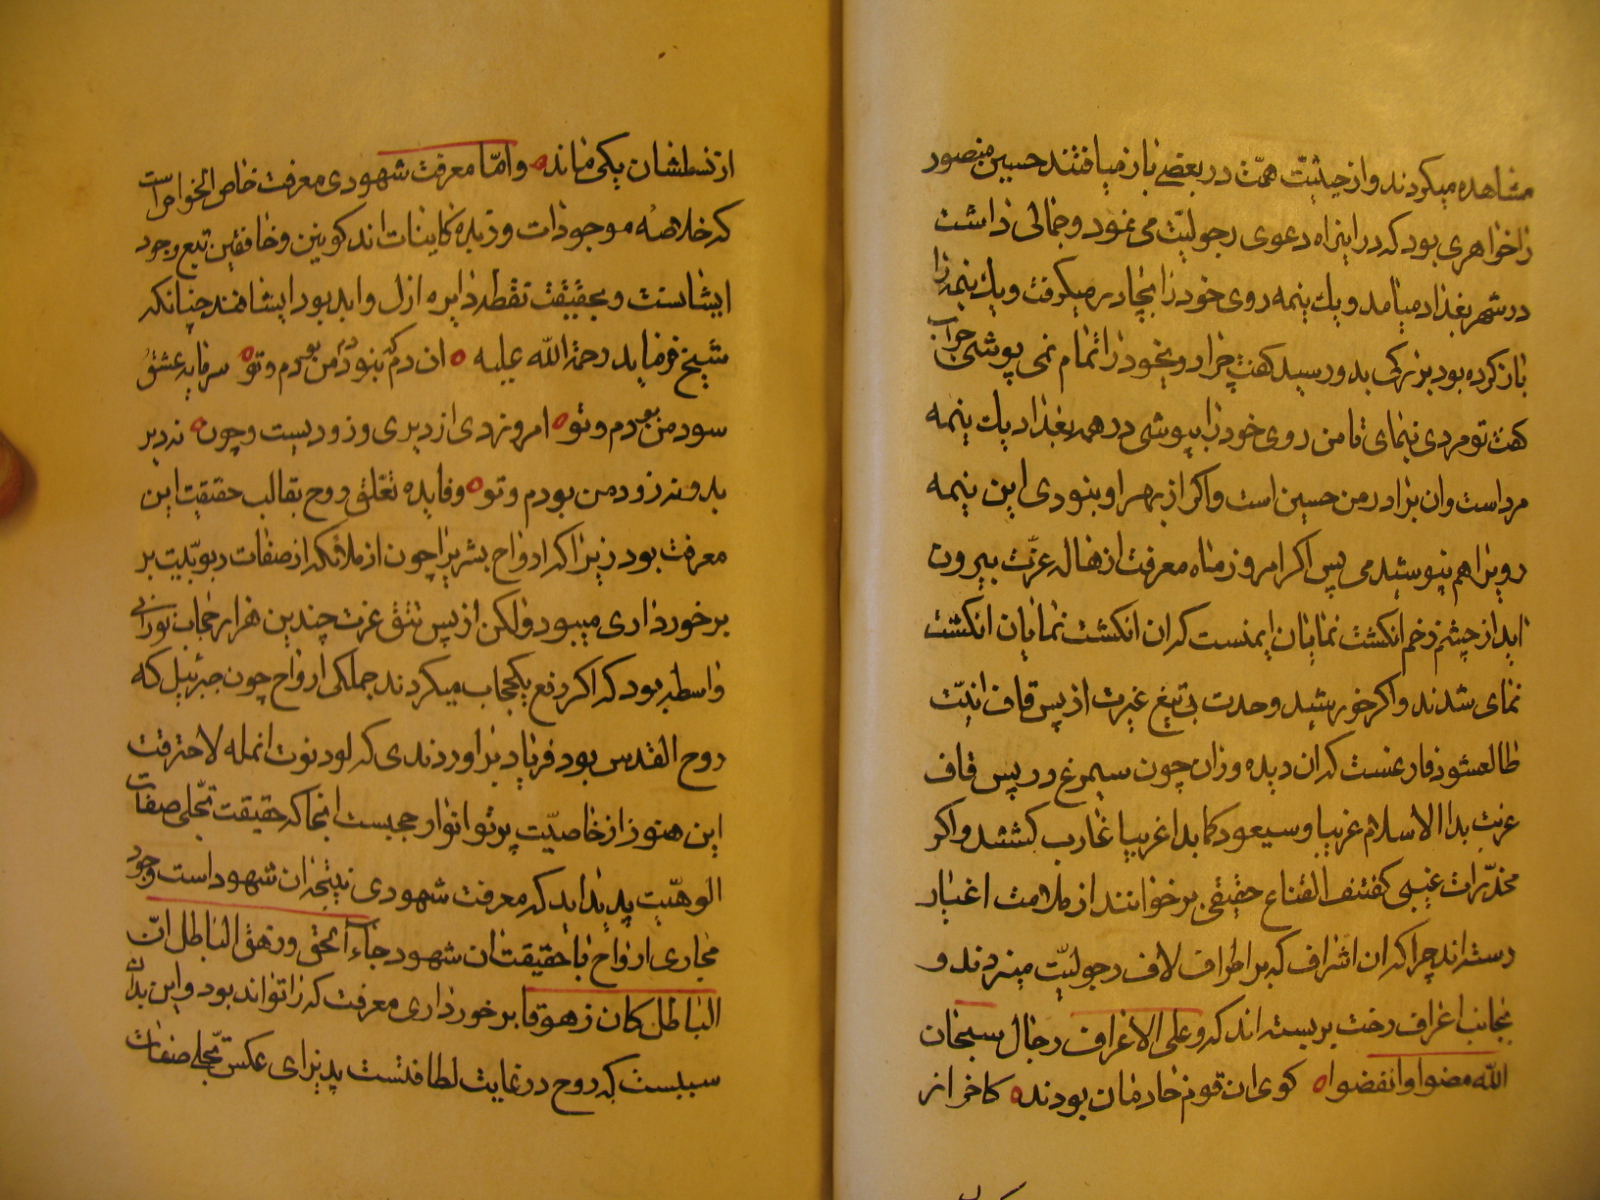 مشاهده میکردند و از حیثیّت همّت در بعضی باز میافتند حسین منصور
را خواهری بود که در این راه دعوی رجولیّت می نمود و جمالی داشت
در شهر بغداد میامد و یك نیمه روی خود را بچادر میکرفت و یك نیمه را
باز کرده بود بزرکی بدو رسید کفت چرا روی خود را تمام نمی پوشی جواب
کفت تو مردی بنمای تا من روی خود را بپوشم در همه بغداد یك نیمه
مرد است و ان برادر من حسین است و اکر از بهر او نبودی این نیمه
رویرا هم نپوشیدمی پس اکر امروز ماه معرفت از هاله عزّت بیرون
اید از چشم زخم انکشت نمایان ایمنست که ان انکشت نمایان انکشت
نمای شدند و اکر خورشید وحدت بی تیغ غیرت از پس قاف انیّت
طالع شود فارغست که ان دیده وران چون سیمرغ در پس قاف
غربت بدا الاسلام غریبا و سیعود کما بدا غریبا غارب کشتند و اکر
مخدّرات غیبی کفتنف القناع حقیقی برخوانند از ملامت اغیار
رسته اند چرا که ان اشراف که بر اطراف لاف رجولیّت میزدند و
بجانب اعراف رخت بربسته اند که و علی الاعراف رجال سبحان
الله مضوا و انقضوا کوی ان قوم خادمان بودند کاخر از
از نسلشان یکی نماند و امّا معرفت شهودی معرفت خاص الخواص است
که خلاصهٔ موجودات و زبده کاینات اند کونین و خافقین تبع وجود
ایشانست و بحقیقت نقطه دایره ازل و ابد بود ایشانند چنانکه
شیخ فرماید رحمة الله علیه ان دم که نبود بود من بودم و تو سرمایه عشق
سود من بودم و تو امروز دی از دیری و زودیست و چون نه دیر
بد و نه زود من بودم و تو و فایده تعلّق روح بقالب حقیقت این
معرفت بود زیرا که ارواح بشریرا چون از ملائکه از صفات ربوبّیت بر
برخورداری میبود ولکن از پس تتق عزت چندین هزار حجاب نورانی
واسطه بود که اکر رفع یکحجاب میکردند جملکی ارواح چون جبرئیل که
روح القدس بود فریاد براوردندی که لو دنوت انمله لاحترقت
این هنوز از خاصیّت پرتو انوار حجبست انجا که حقیقت تجّلی صفات
الوهیّت پدید اید که معرفت شهودی نتیجه ان شهود است وجود
مجازی ارواح با حقیقت ان شهود جاء الحق و زهق الباطل انّ
الباطل کان زهوقا برخورداری معرفت که را تواند بود و این بدان
سببست که روح در غایت لطافتست پذیرای عکس تجّلی صفات